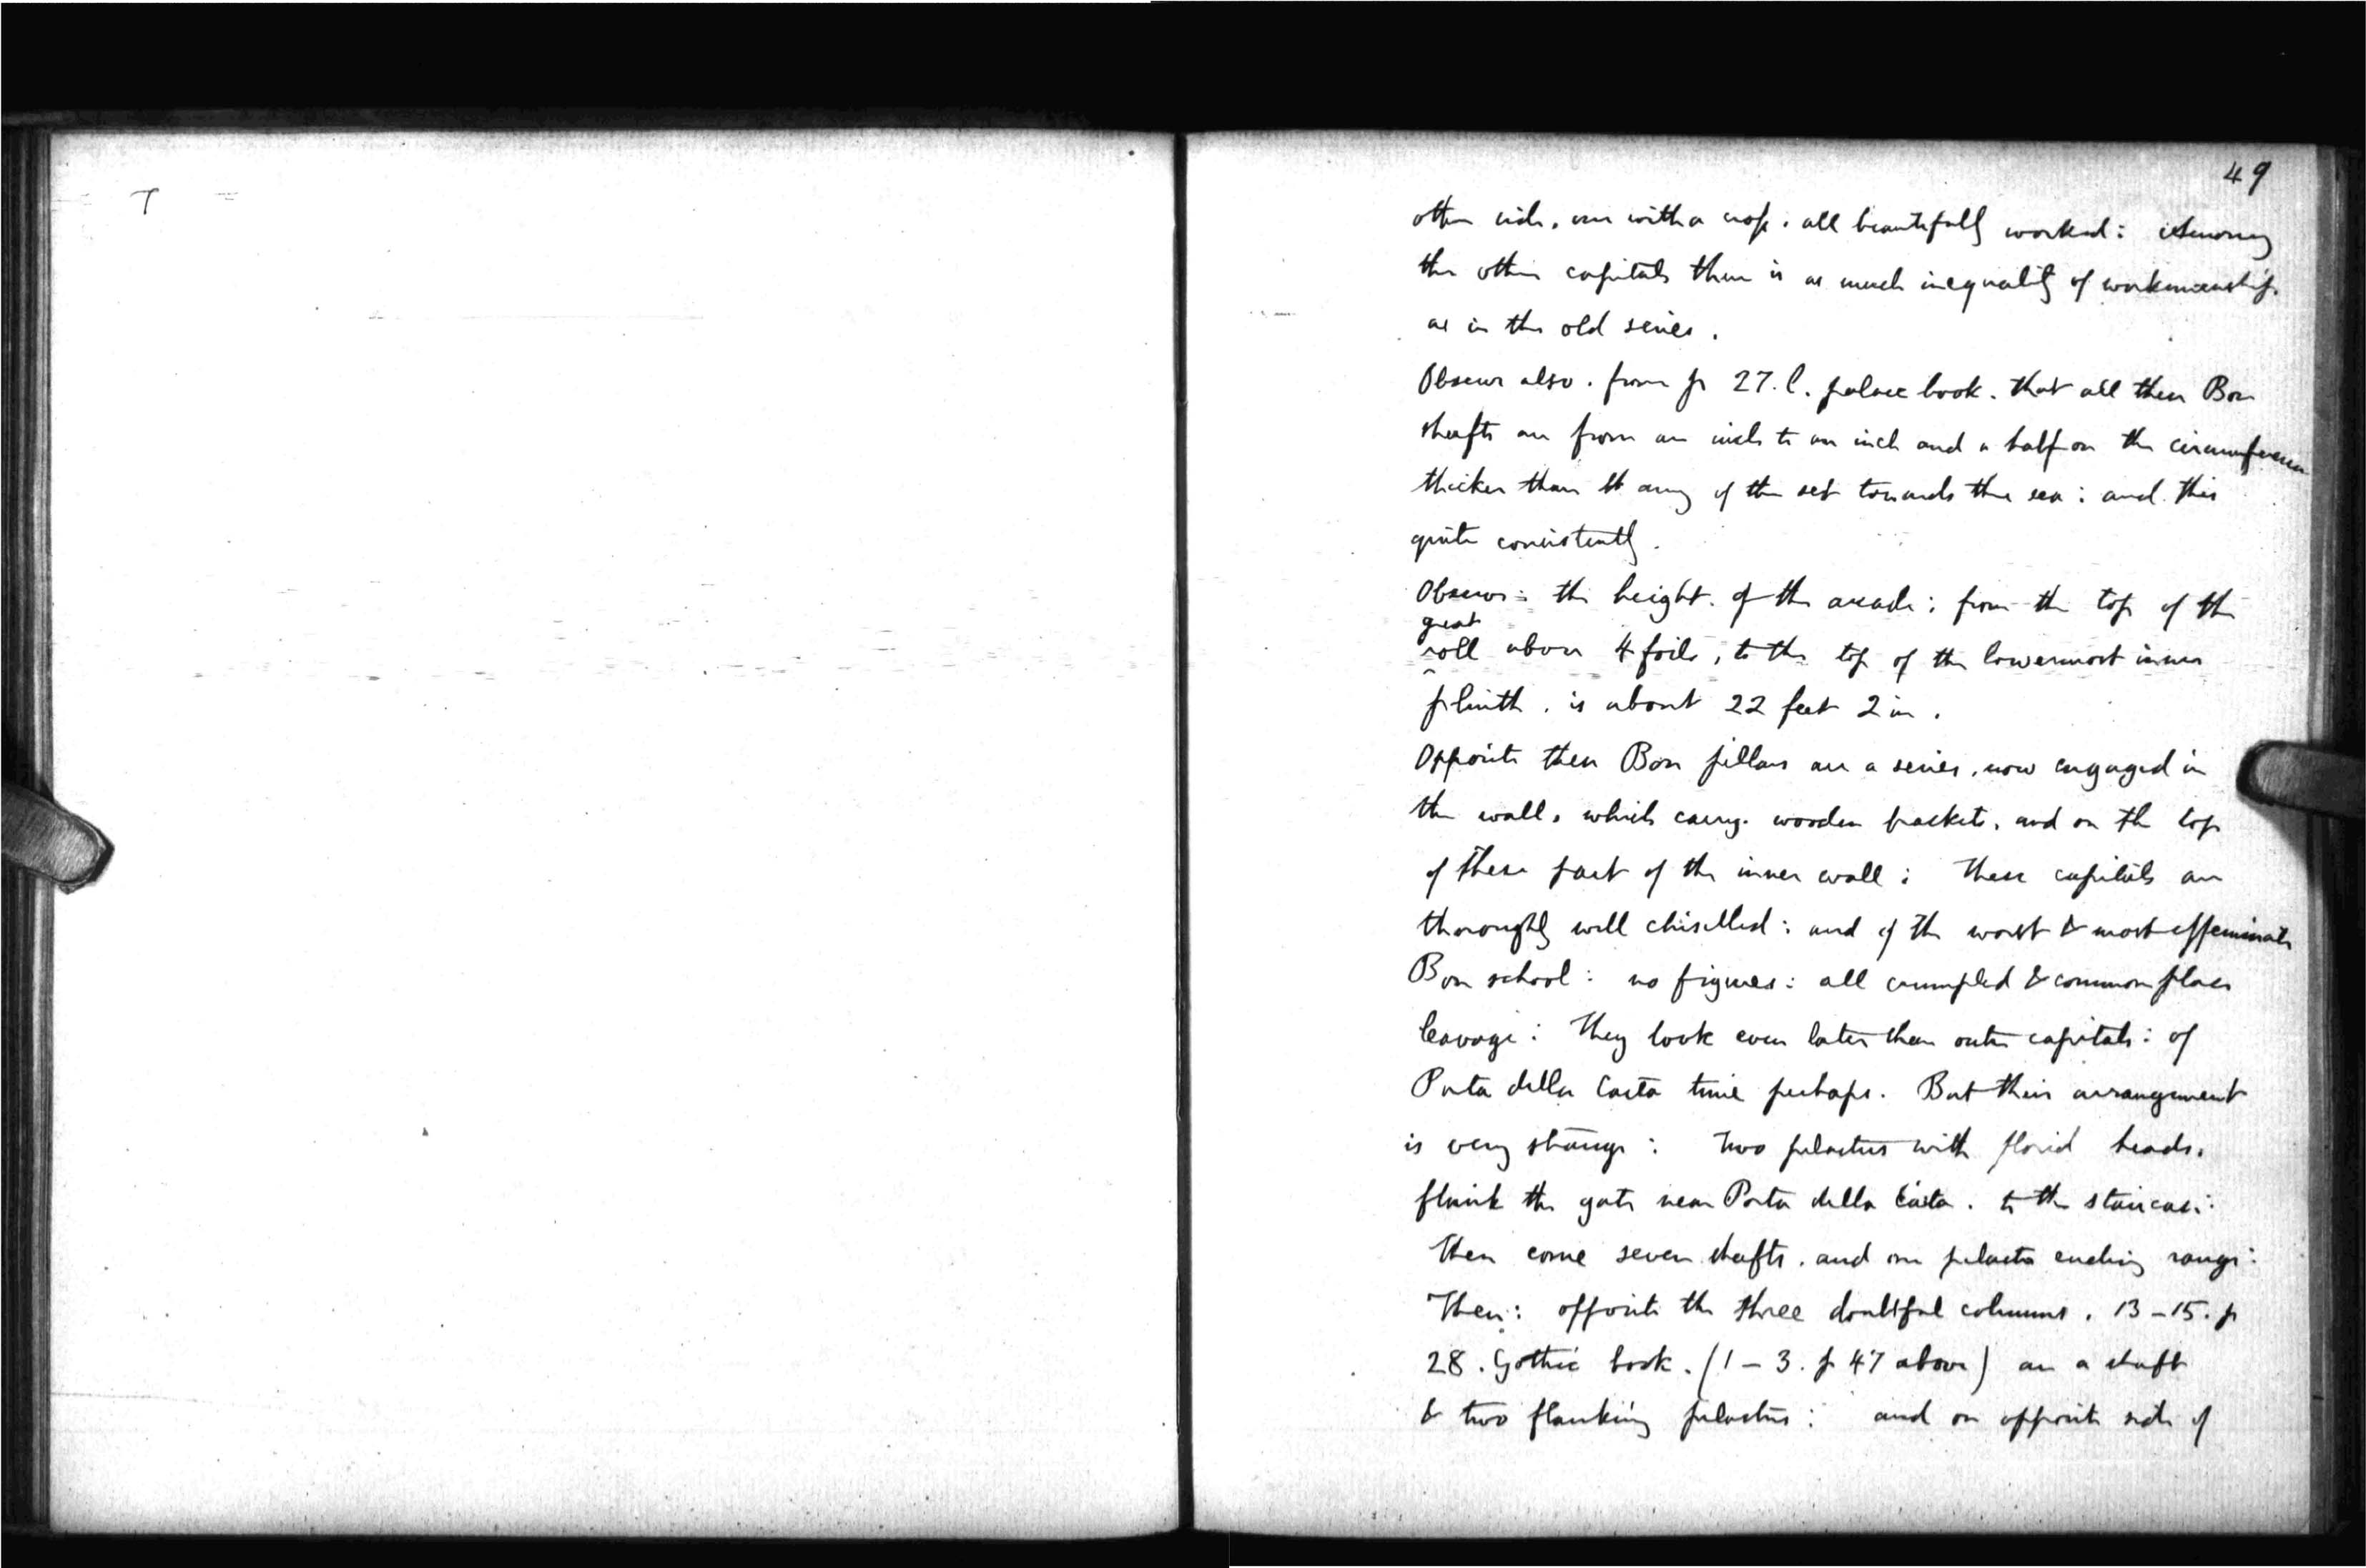 T
49
other side, one with a rose. all beautifully worked: Among
the other capitals there is as much inequality of workmanship
as in the old series.
Observe also. from p 27. l. palace book. that all these Bon
shafts are from an inch to an inch and a half on the circumference
thicker than any of the set towards the sea: and this
quite consistently.
Observe: the height. of the arcade; from the top of the
great
roll above 4 foils, to the top of the lowermost inner
plinth. is about 22 feet 2 in.
Opposite these Bon pillars are a series, now engaged in
the wall, which carry. wooden brackets, and on the top
of these part of the inner wall: These capitals are
thoroughly well chiselled: and of the worst & most effeminate
Bon school: no figures: all crumpled & commonplace
leavage: They look even later than outer capitals: of
Porta della Carta time perhaps. But their arrangement
is very strange: Two pilasters with florid heads.
flank the gate near Porta della Carta. to the staircase:
Then come seven shafts. and one pilaster ending range:
Then: opposite the three doubtful columns. 13-15. p
28. Gothic book. (1-3. p 47 above) are a shaft
& two flanking pilasters: and on opposite side of